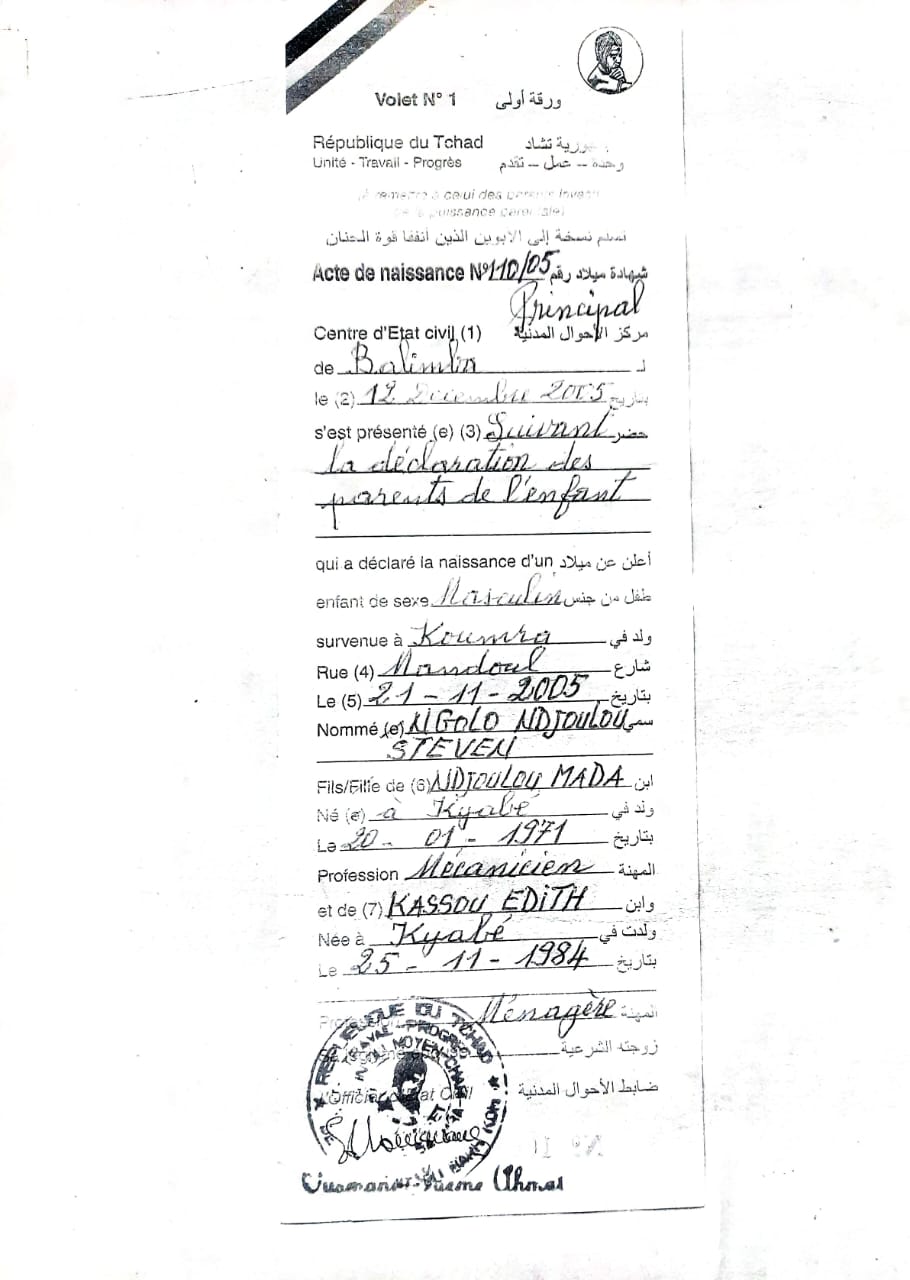 Volet N° 1 ورقة أولى
République du Tchad جمهورية تشاد
Unité - Travail - Progrès وحدة – عمل – تقدم
(A remettre à celui des parents investi
de la puissance parentale)
تسلم نسخة إلى الابوين الذين أنفقا قوة الحنان
Acte de naissance N° 110/05 شهادة ميلاد رقم
Principal
Centre d'Etat civil (1) مركز الأحوال المدنية
de Balimba لـ
le (2) 12 Décembre 2005 بتاريخ
s'est présenté (e) (3) Suivant حضر
la déclaration des
parents de l'enfant
qui a déclaré la naissance d'un أعلن عن ميلاد
enfant de sexe Masculin طفل من جنس
survenue à Koumra ولد في
Rue (4) Mandoul شارع
Le (5) 21 - 11 - 2005 بتاريخ
Nommé (e) NGOLO NDJOULOU سمي
STEVEN
Fils/Fille de (6) NDJOULOU MADA ابن
Né (e) à Kyabé ولد في
Le 20 - 01 - 1971 بتاريخ
Profession Mécanicien المهنة
et de (7) KASSOU EDITH وابن
Née à Kyabé ولدت في
Le 25 - 11 - 1984 بتاريخ
Profession Ménagère المهنة
زوجته الشرعية
L'Officier d'Etat Civil ضابط الأحوال المدنية
REPUBLIQUE DU TCHAD